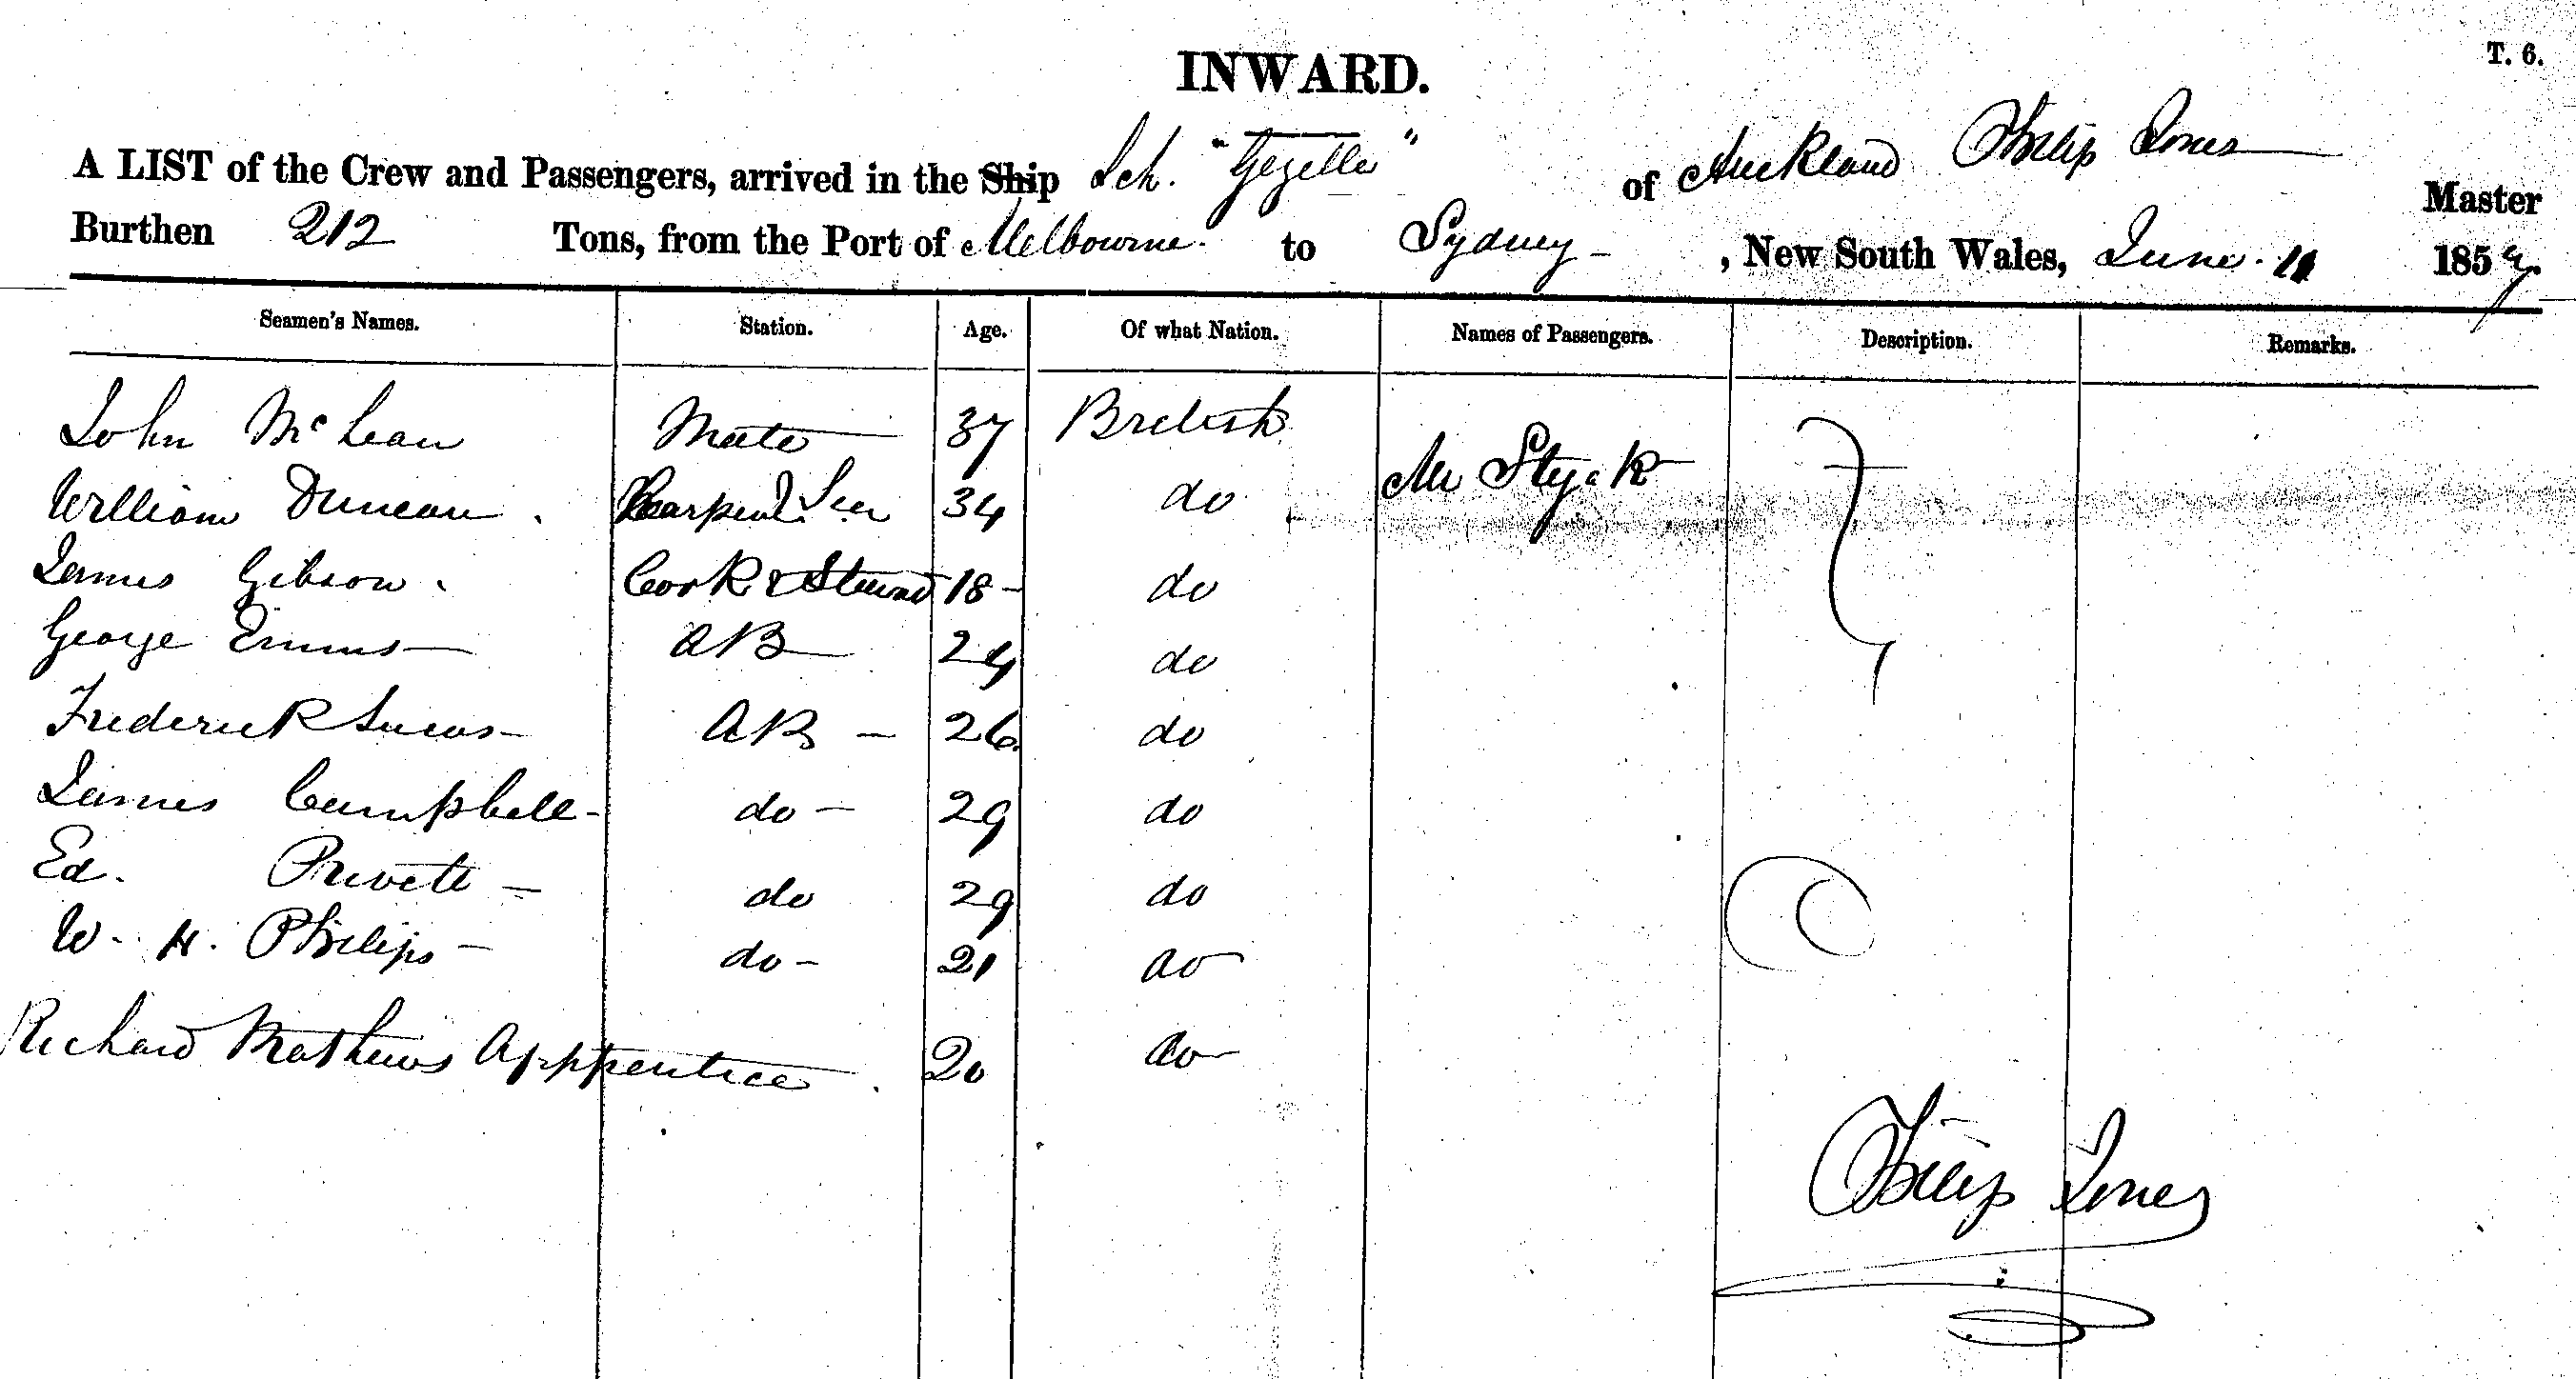 T. 6.
INWARD.
A LIST of the Crew and Passengers, arrived in the Ship Sch. "Gezelle" of Auckland Philip Jones Master
Burthen 212 Tons, from the Port of Melbourne. to Sydney , New South Wales, June 11 1859.
Seamen's Names. Station. Age. Of what Nation. Names of Passengers. Description. Remarks.
John McLean Mate 37 British
Mr Styak
William Duncan 34 do
James Gibson Cook & Steward 18 do
George AB 24 do
Frederick AB 26 do
James Campbell do 29 do
Ed. Privett do 29 do
W. H. Philips do 21 do
Richard Mathews Apprentice 20 do
Philip Jones